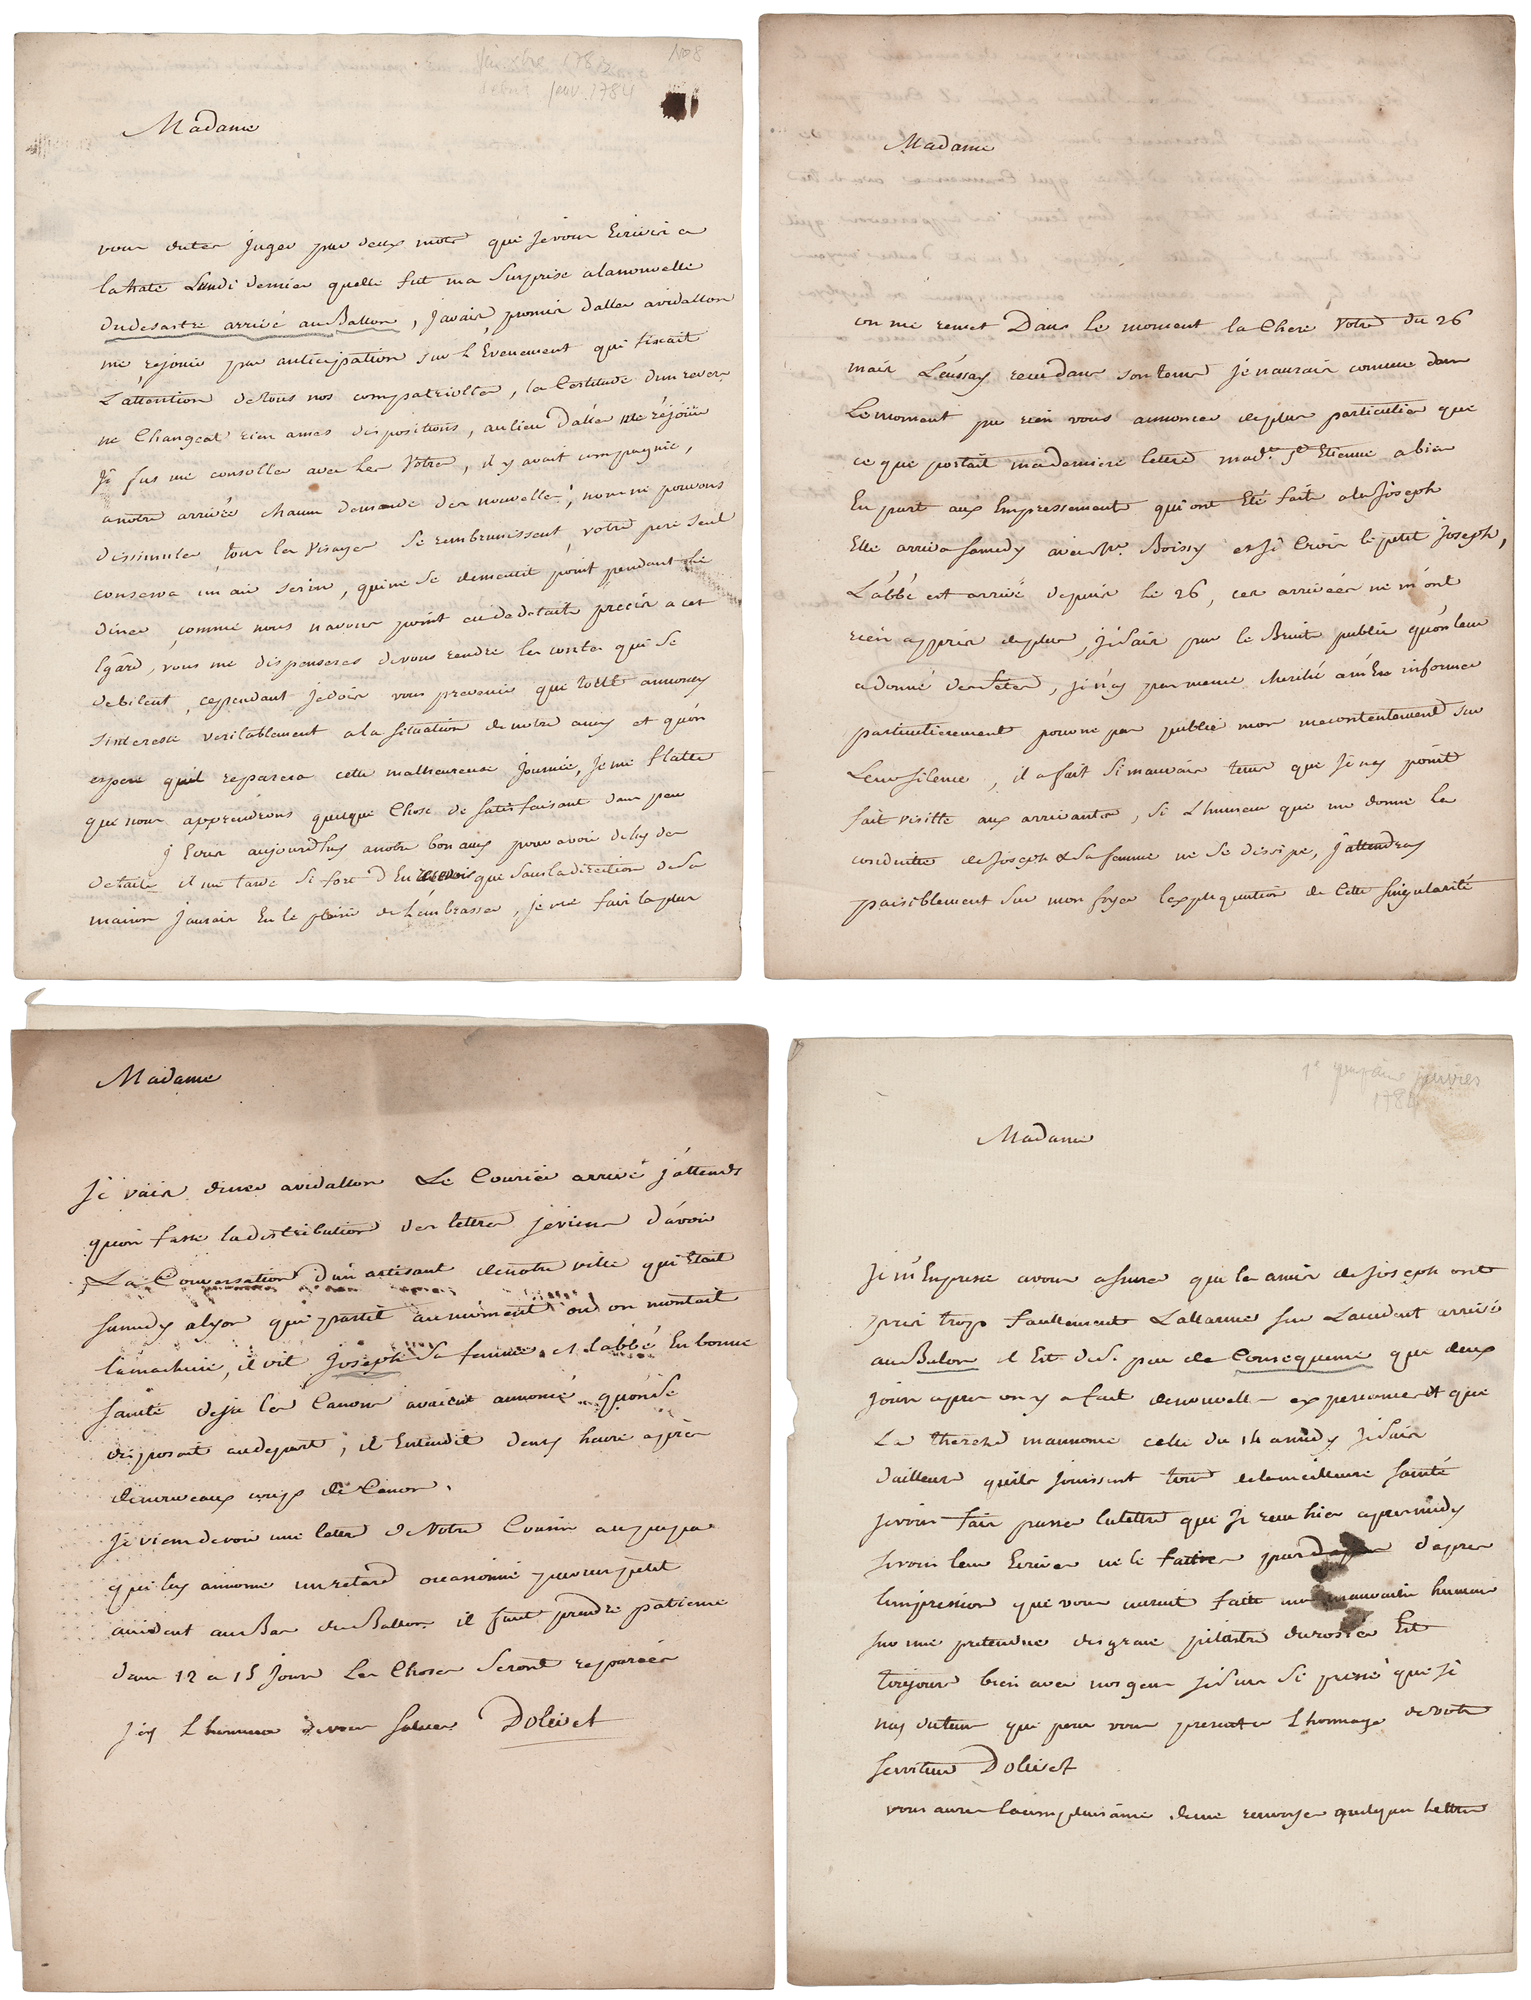 N° 8
janv. 1784
Madame
vous dutes juger par deux mots que je vous Ecrivis a
la hate Lundi dernier quelle fut ma Surprise a la nouvelle
du desastre arrivé au Ballon, j'avais promis d'aller a vidallon
me rejouir par anticipation sur l'Evenement qui fixait
L'attention de tous nos compatriottes, la Certitude d'un revers
ne Changeat rien a mes dispositions, au lieu d'aller me réjouir
Je fus me consoller avec Les Votres, il y avait compagnie,
a notre arrivée chacun demande des nouvelles, nous ne pouvons
dissimuler, tous les Visages se rembrunissent, votre pere seul
conserva un air serin, qui ne se dementit point pendant le
diner, comme nous n'avons point eu de details precis a cet
Egard, vous me dispenseres de vous rendre les contes qui se
debitent, cependant je dois vous prevenir que toutt annonay
s'interesse veritablement a la situation de notre amy et qu'on
espere qu'il reparera cette malheureuse journée, je me flatte
que nous apprendrons quelque Chose de satisfaisant dans peu
J'Ecris aujourd'huy a notre bon amy pour avoir de luy des
details il me tarde si fort d'En que sans la direction de sa
maison j'aurais Eu le plaisir de L'embrasser, je me fais la plus
Madame
on me remet Dans Le moment la Chere Votre du 26
mais L'eussay recu dans son tems je n'aurais comme dans
Le moment pu rien vous annoncer de plus particulier que
ce que portait ma derniere lettre mad.e S.t Etienne a bien
Eu part aux Empressements qui ont Eté fait a la Joseph
Elle arriva samedy avec Mr. Boissy et je Crois le petit Joseph,
L'abbé est arrivé depuis le 26, ces arrivées ne m'ont
rien appris de plus, je sais par le Bruit public qu'on leur
a donné des fetes, je n'ay pas meme cherché a m'En informer
particulierement pour ne pas publier mon mecontentement sur
Leur silence, il a fait si mauvais tems que je n'ay point
fait visitte aux arrivants, si L'humeur que me donne la
conduitte de Joseph & sa femme ne se dissipe, j'attendray
paisiblement sur mon foyer l'expliquation de cette singularité
Madame
Je vais diner a vidallon Le Courier arrive j'attends
qu'on fasse la distribution des lettres je viens d'avoir
La Conversation d'un artisant de notre ville qui Etait
samedy a lyon qui partit au moment ou on montait
la machine, il vit Joseph sa femme et l'abbé En bonne
santé deja les Canons avaient annoncé qu'on se
disposait au depart, il Entendit deux heure apres
de nouveaux coups de Canon.
Je viens de voir une lettre de Votre Cousin au papa
qui luy annonce un retard occasionné par un petit
accident au Bas du Ballon il faut prendre patience
dans 12 a 15 jours Les Choses seront reparées
J'ay L'honneur de vous saluer Dolivet
janvier
1784
Madame
Je m'Empresse a vous assurer que les amis de Joseph ont
pris trop facillement L'allarme sur L'accident arrivé
au Balon il Est de si peu de Consequence que deux
jours apres on y a fait de nouvelles experiences et que
La therese m'annonce celle du 14 a midy je sais
d'ailleurs qu'ils jouissent tous de la meilleure santé
je vous fais passer la lettre que je recu hier apres midy
si vous leur Ecrives ne le faittes pas d'apres
l'impression que vous auroit faitte ma mauvaise humeur
sur une pretendue disgrace pilastre du rosier Est
toujours bien avec nos gens je suis si pressé que je
n'ay du tems que pour vous presenter L'hommage de votre
serviteur Dolivet
vous aures la complaisance de me renvoyer quelques lettres